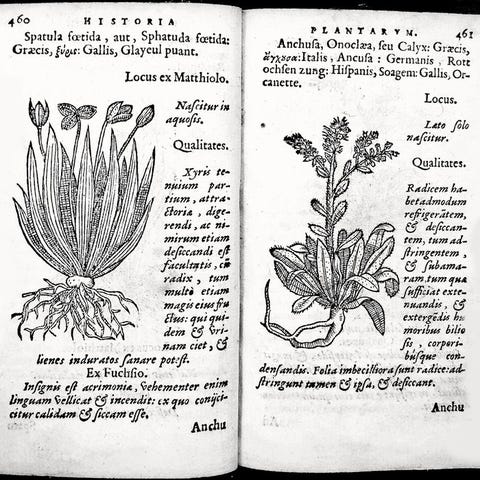 460 HISTORIA
Spatula fœtida, aut, Sphatuda fœtida:
Græcis, ξύρις: Gallis, Glayeul puant.
Locus ex Matthiolo.
Nascitur in
aquosis.
Qualitates.
Xyris te-
nuium par-
tium, attra-
ctoria, dige-
rendi, ac ni-
mirum etiam
desiccandi est
facultatis, cũ
radix, tum
multò etiam
magis eius fru
ctus: qui qui-
dem & vri-
nam ciet, &
lienes induratos sanare potest.
Ex Fuchsio.
Insignis est acrimonia, vehementer enim
linguam vellicat & incendit: ex quo conijci-
citur calidam & siccam esse.
Anchu
PLANTARVM. 461
Anchusa, Onoclæa, seu Calyx: Græcis,
ἄγχουσα: Italis, Ancusa: Germanis, Rott
ochsen zung: Hispanis, Soagem: Gallis, Or-
canette.
Locus.
Lato solo
nascitur.
Qualitates.
Radicem ha-
bet admodum
refrigerãtem,
& desiccan-
tem, tum ad-
stringentem,
& subama-
ram, tum quæ
sufficiat exte-
nuandis, &
extergẽdis hu
moribus bilio
sis, corpori-
búsque con-
densandis. Folia imbecilliora sunt radice: ad-
stringunt tamen & ipsa, & desiccant.
Anchu